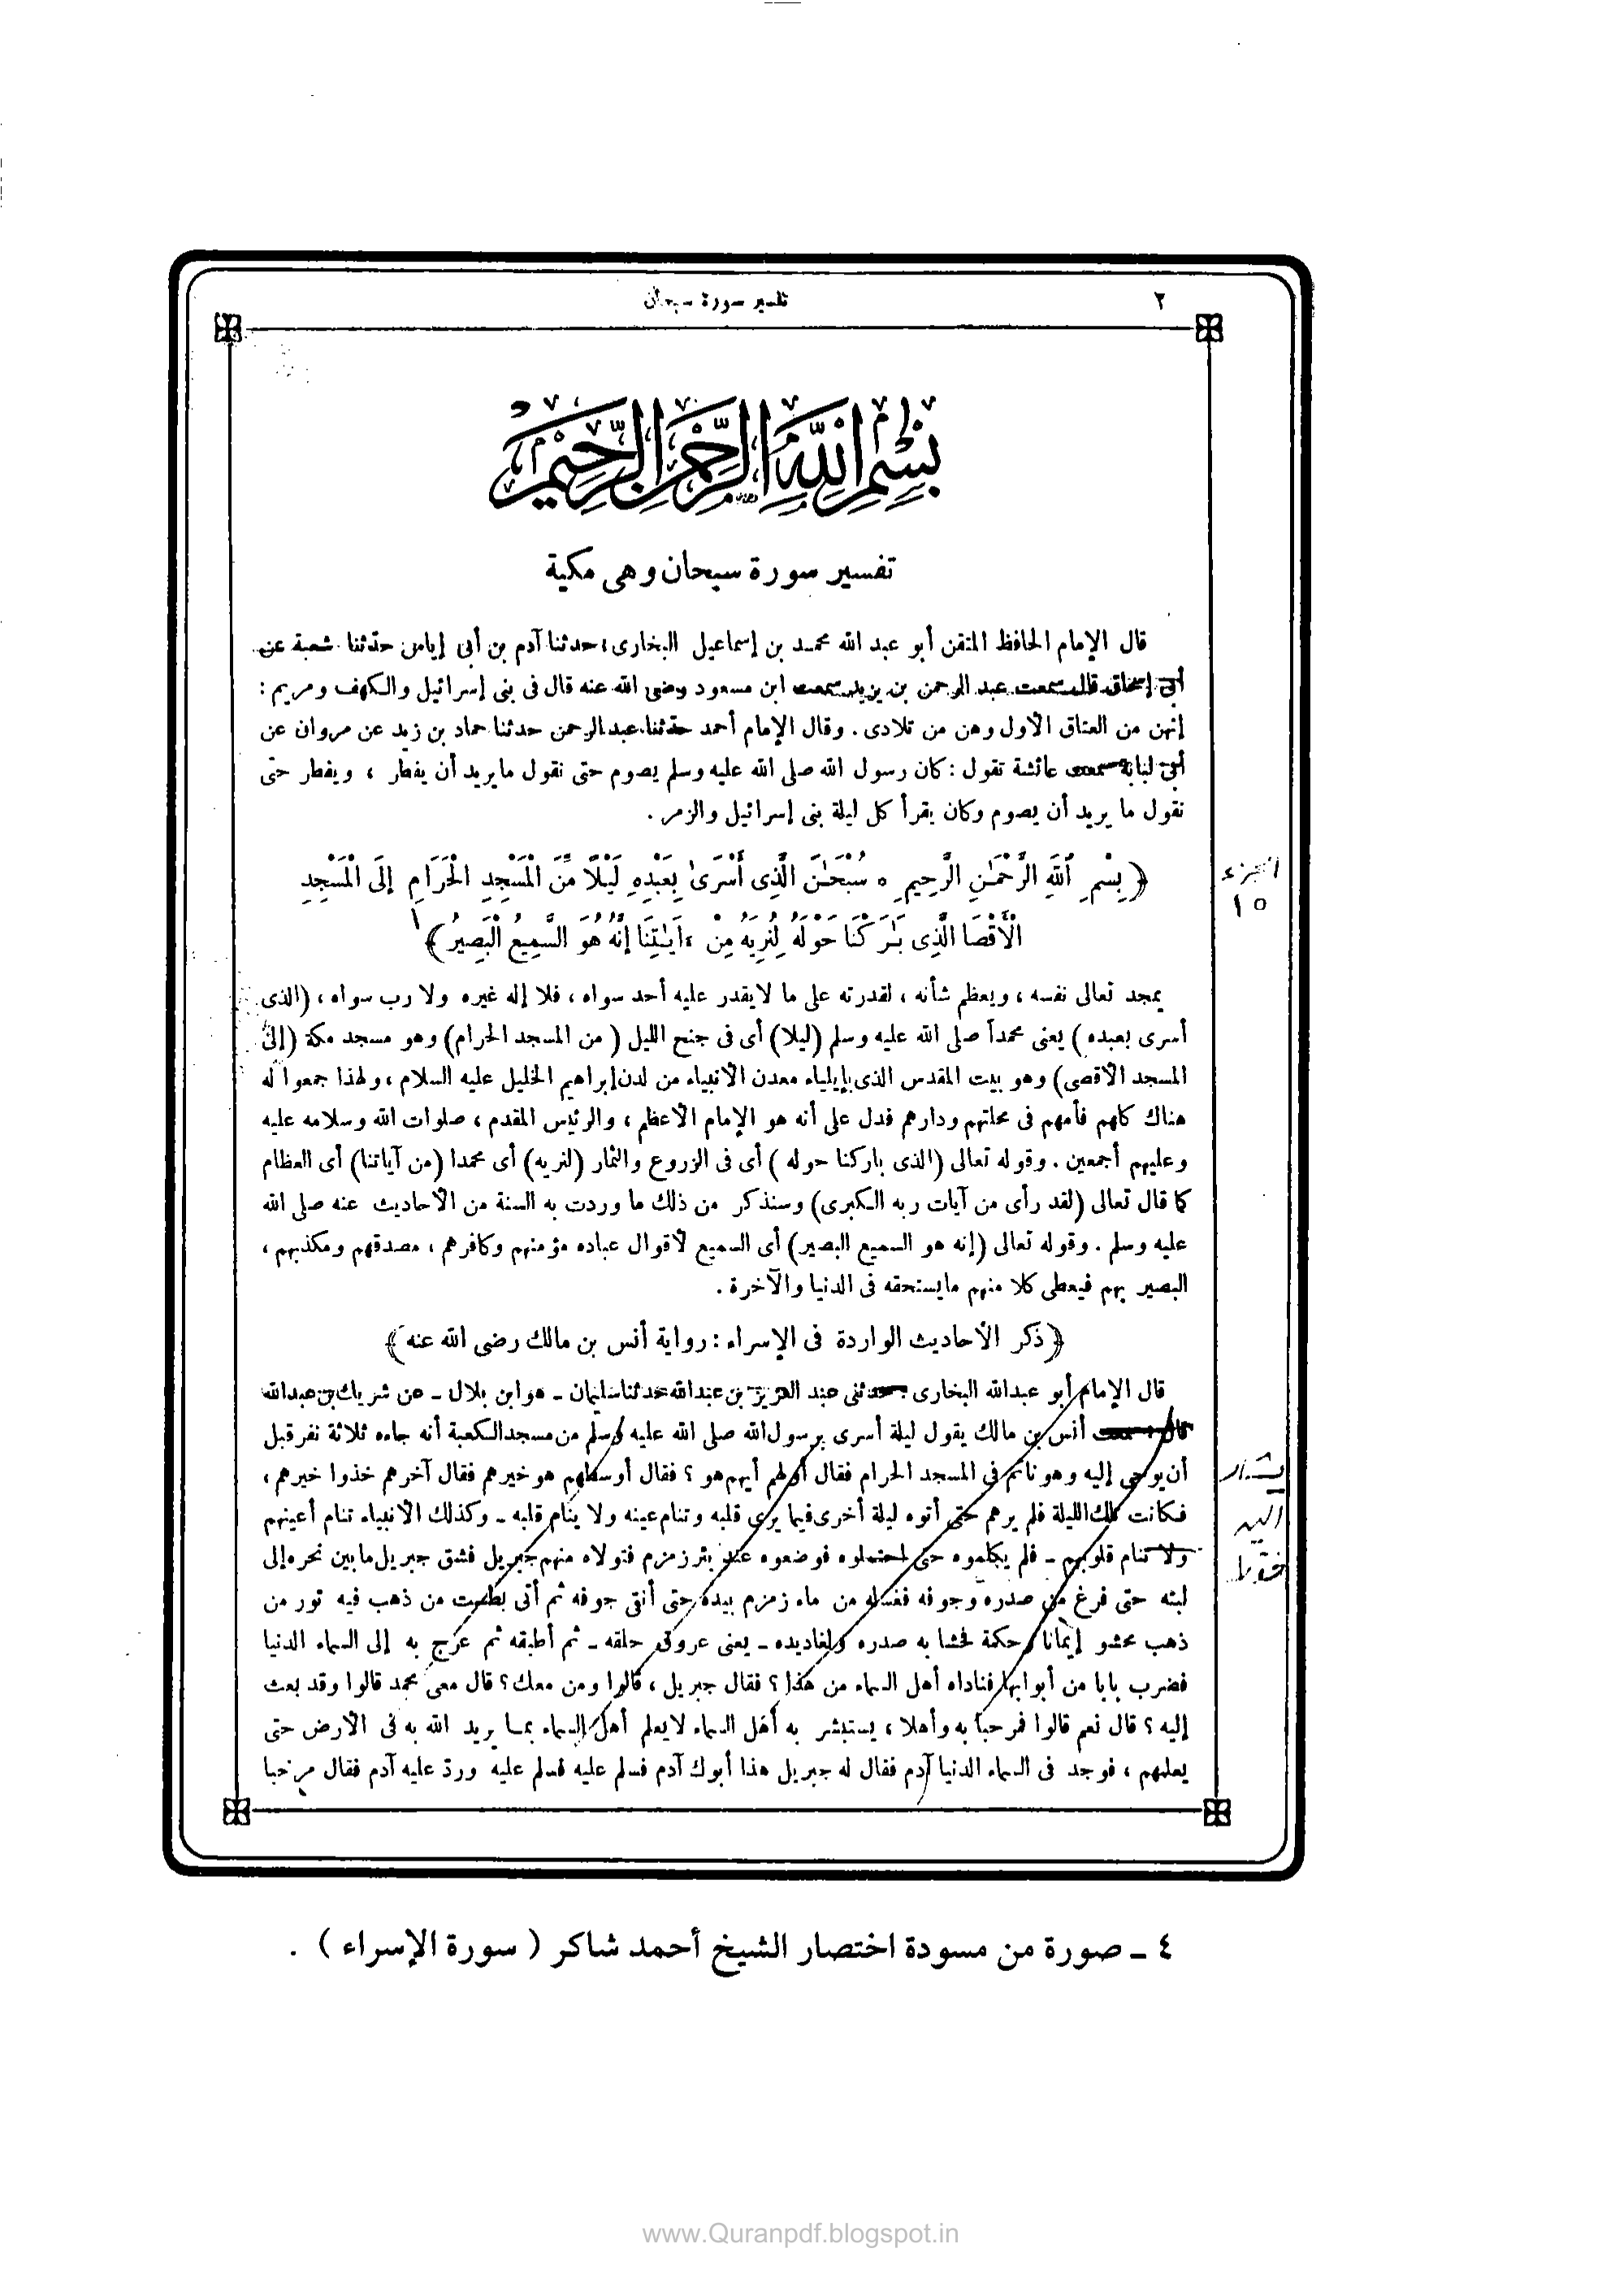 ٢
تفسير سورة سبحان
بسم الله الرحمن الرحيم
تفسير سورة سبحان وهى مكية
قال الإمام الحافظ المتقن أبو عبد الله محمد بن إسماعيل البخارى ، حدثنا آدم بن أبى إياس حدثنا شعبة عن
أبى إسحاق قال سمعت عبد الرحمن بن يزيد سمعت ابن مسعود رضى الله عنه قال فى بنى إسرائيل والكهف ومريم :
إنهن من العتاق الأول وهن من تلادى . وقال الإمام أحمد حدثنا عبدالرحمن حدثنا حماد بن زيد عن مروان عن
أبى لبابة سمعت عائشة تقول : كان رسول الله صلى الله عليه وسلم يصوم حتى نقول مايريد أن يفطر ، ويفطر حتى
نقول ما يريد أن يصوم وكان يقرأ كل ليلة بنى إسرائيل والزمر .
﴿ بِسْمِ ٱللَّهِ الرَّحْمَـٰنِ الرَّحِيمِ ه سُبْحَـٰنَ الَّذِى أَسْرَىٰ بِعَبْدِهِ لَيْلًا مِّنَ الْمَسْجِدِ الْحَرَامِ إِلَى الْمَسْجِدِ
الْأَقْصَا الَّذِى بَـٰرَكْنَا حَوْلَهُ لِنُرِيَهُ مِنْ ءَايَـٰتِنَا إِنَّهُ هُوَ السَّمِيعُ الْبَصِيرُ ﴾
الجزء
١٥
يمجد تعالى نفسه ، ويعظم شأنه ، لقدرته على ما لايقدر عليه أحد سواه ، فلا إله غيره ولا رب سواه ، (الذى
أسرى بعبده ) يعنى محمداً صلى الله عليه وسلم (ليلا) أى فى جنح الليل ( من المسجد الحرام) وهو مسجد مكة (إلى
المسجد الأقصى) وهو بيت المقدس الذى بإيلياء معدن الأنبياء من لدن إبراهيم الخليل عليه السلام ، ولهذا جمعوا له
هناك كلهم فأمهم فى محلتهم ودارهم فدل على أنه هو الإمام الأعظم ، والرئيس المقدم ، صلوات الله وسلامه عليه
وعليهم أجمعين . وقوله تعالى (الذى باركنا حوله ) أى فى الزروع والثمار (لنريه) أى محمدا (من آياتنا) أى العظام
كما قال تعالى (لقد رأى من آيات ربه الكبرى) وسنذكر من ذلك ما وردت به السنة من الأحاديث عنه صلى الله
عليه وسلم . وقوله تعالى (إنه هو السميع البصير) أى السميع لأقوال عباده مؤمنهم وكافرهم ، مصدقهم ومكذبهم ،
البصير بهم فيعطى كلا منهم مايستحقه فى الدنيا والآخرة .
﴿ذكر الأحاديث الواردة فى الإسراء : رواية أنس بن مالك رضى الله عنه ﴾
قال الإمام أبو عبدالله البخارى حدثنى عبد العزيز بن عبدالله حدثنا سليمان ـ هو ابن بلال ـ عن شريك بن عبدالله
قال سمعت أنس بن مالك يقول ليلة أسرى برسول الله صلى الله عليه وسلم من مسجد الكعبة أنه جاءه ثلاثة نفر قبل
أن يوحى إليه وهو نائم فى المسجد الحرام فقال أولهم أيهم هو ؟ فقال أوسطهم هو خيرهم فقال آخرهم خذوا خيرهم ،
فكانت تلك الليلة فلم يرهم حتى أتوه ليلة أخرى فيما يرى قلبه وتنام عينه ولا ينام قلبه ـ وكذلك الأنبياء تنام أعينهم
ولا تنام قلوبهم ـ فلم يكلموه حتى احتملوه فوضعوه عند بئر زمزم فتولاه منهم جبريل فشق جبريل مابين نحره إلى
لبته حتى فرغ من صدره وجوفه فغسله من ماء زمزم بيده حتى أنقى جوفه ثم أتى بطست من ذهب فيه تور من
ذهب محشو إيمانا وحكمة فحشا به صدره ولغاديده ـ يعنى عروق حلقه ـ ثم أطبقه ثم عرج به إلى السماء الدنيا
فضرب بابا من أبوابها فناداه أهل السماء من هذا ؟ فقال جبريل ، قالوا ومن معك ؟ قال معى محمد قالوا وقد بعث
إليه ؟ قال نعم قالوا فمرحبا به وأهلا ، يستبشر به أهل السماء لايعلم أهل السماء بمـا يريد الله به فى الأرض حتى
يعلمهم ، فوجد فى السماء الدنيا آدم فقال له جبريل هذا أبوك آدم فسلم عليه فسلم عليه ورد عليه آدم فقال مرحبا
يشار
إليه
فقط
٤ ـ صورة من مسودة اختصار الشيخ أحمد شاكر ( سورة الإسراء ) .
www.Quranpdf.blogspot.in